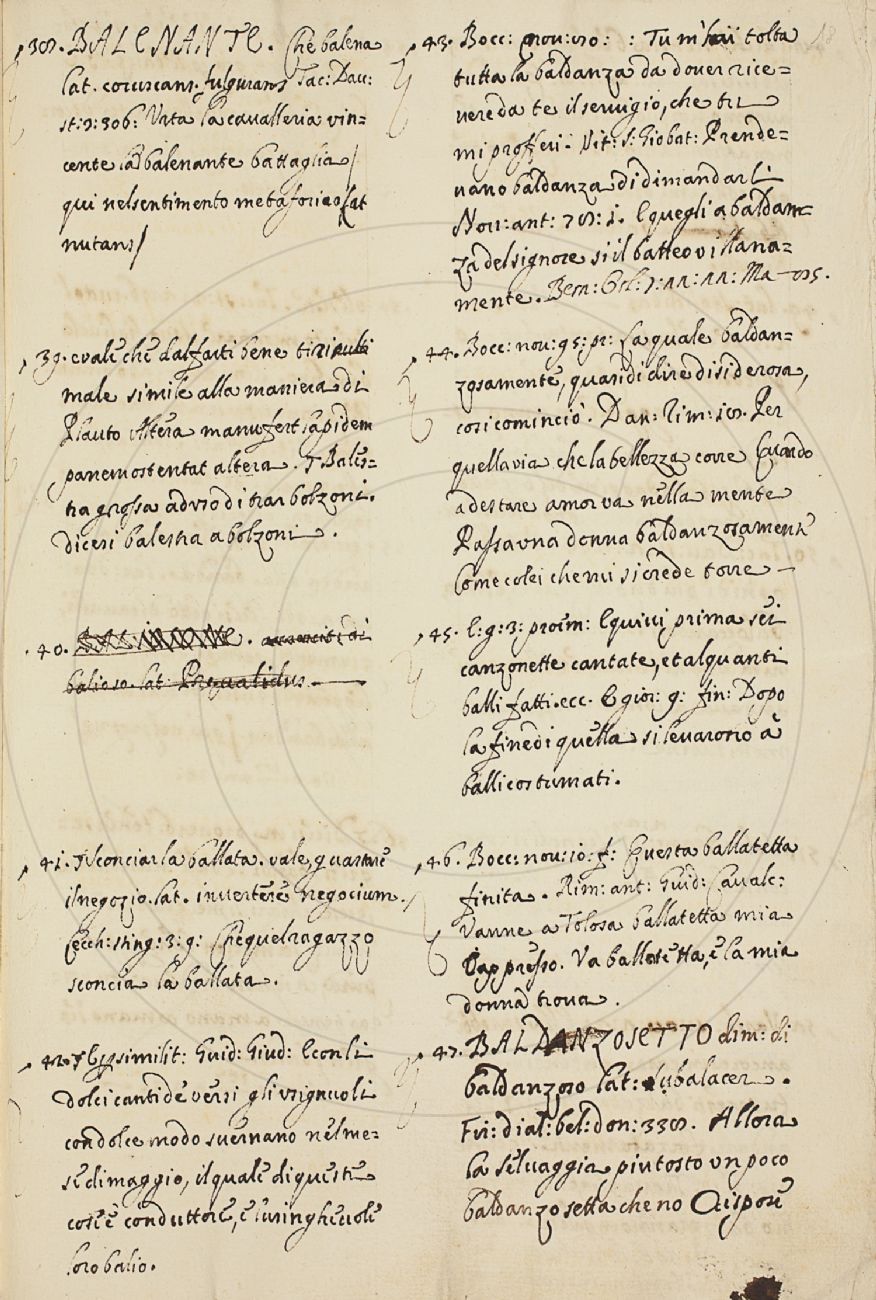 38. BALENANTE. Che balena
lat. coruscans, fulgurans Tac: Dav:
st: 3: 306: Urta la cavalleria vin=
cente la balenante battaglia/
qui nel sentimento metaforico lat
nutans/
39. e vale che dal far ti bene ti
male simile alla maniera di
Plauto Altera manu fert lapidem
panem ostentat altera. Bales=
tra grossa ad uso di trar bolzoni.
dicesi balestra a bolzoni.
40.
balioso. lat.
41. Sconciar la ballata. vale, guastare
il negozio. lat. invertere negocium.
Cecch: sting: 3: 9: Che quel ragazzo
sconcia la ballata.
42. Per similit: Guid: Giud: E con li
dolci canti de versi gli usignuoli
con dolce modo svernano nel me=
se di maggio, il quale di queste
cose è conduttore, e lusinghevole
loro balio.
43. Bocc: nov: 80: : Tu m'hai tolta
tutta la baldanza da dover rice=
vere da te il servigio, che tu
mi profferi. Vit: S: Gio bat: Prende=
vano baldanza di dimandarli
Nov: ant: 78: 1. E quegli a baldan=
za del signore si il batteo villana=
mente. Bern: Orl:
44. Bocc: nov: 95: pr: La quale baldan=
zosamente, quasi di dire disiderosa,
cosi cominciò. Dan: Rim: 18. Per
quella via che la bellezza corre Quando
a destare amor va nella mente
Passa una donna baldanzosamente
Come colei che mi si crede torre
45. E: g: 3: proem: E quivi prima sei
canzonette cantate, et alquanti
balli fatti. ecc. E gior: 9: fin: Dopo
la fine di quella si levarono à
balli costumati.
46. Bocc: nov: 10: f: Questa ballatetta
finita. Rim: ant: Guid: Cavalc:
Vanne a Tolosa ballatetta mia
E appresso. Va ballatetta, e la mia
donna trova.
47. BALDANZOSETTO dim: di
baldanzoso lat: subalacer.
Fir: dial: bel: don: 338. Allora
la selvaggia piutosto un poco
baldanzosetta che no Rispose